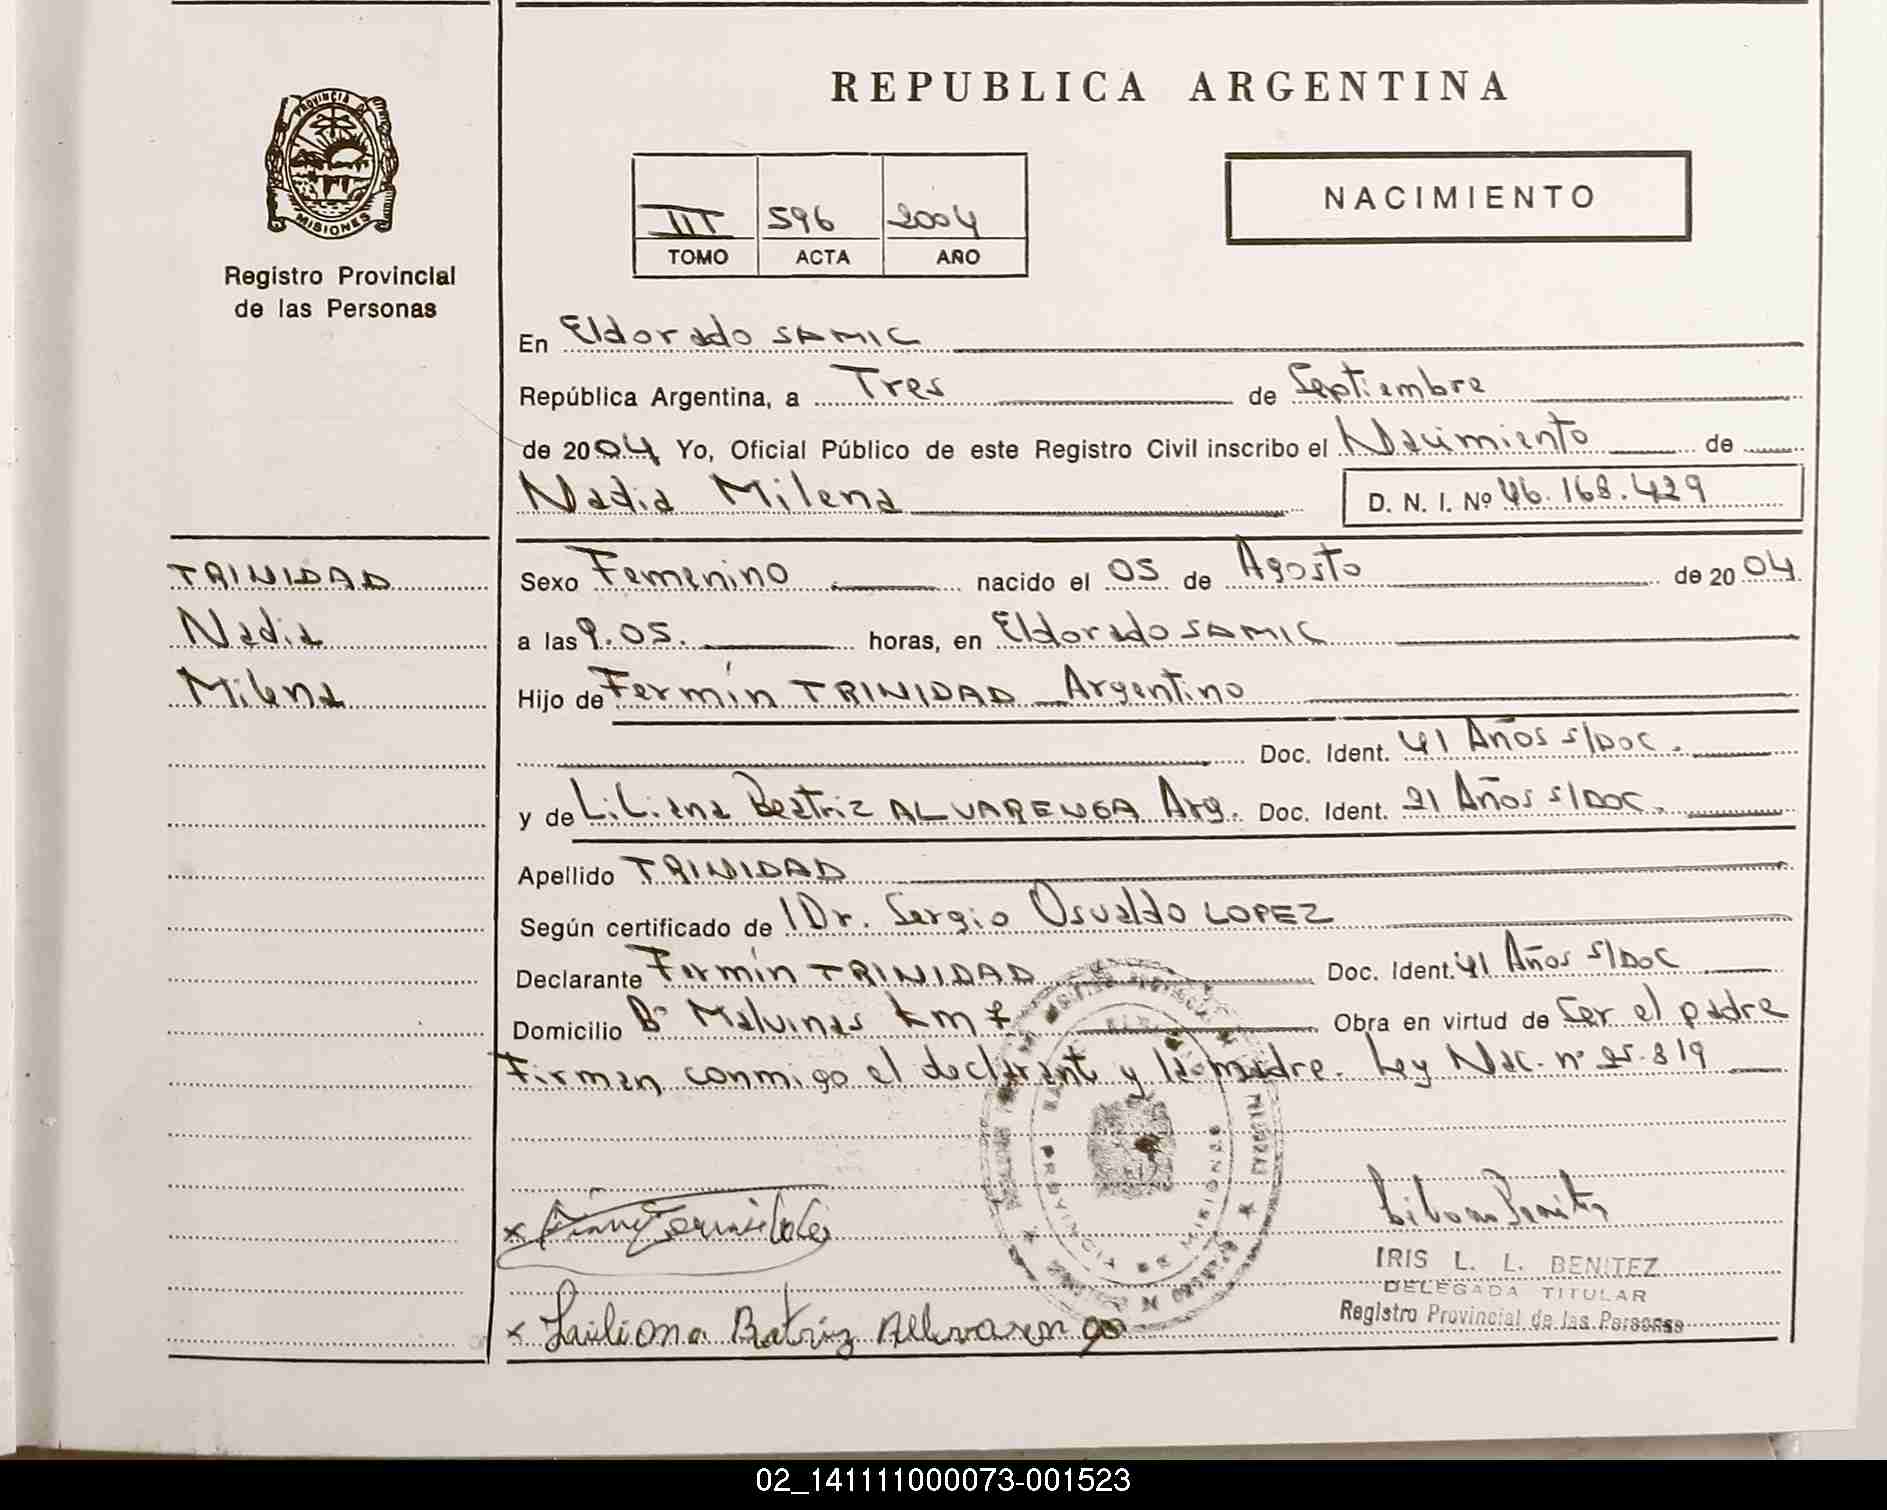 PROVINCIA DE
MISIONES
Registro Provincial
de las Personas
TRINIDAD
Nadia
Milena
REPUBLICA ARGENTINA
III 596 2004
TOMO ACTA AÑO
NACIMIENTO
En Eldorado SAMIC
República Argentina, a Tres de Septiembre
de 2004 Yo, Oficial Público de este Registro Civil inscribo el Nacimiento de
Nadia Milena D. N. I. Nº 46.168.429
Sexo Femenino nacido el 05 de Agosto de 2004
a las 9.05. horas, en Eldorado SAMIC
Hijo de Fermín TRINIDAD Argentino
Doc. Ident. 41 Años s/Doc.
y de Liliana Beatriz ALVARENGA Arg. Doc. Ident. 21 Años s/Doc.
Apellido TRINIDAD
Según certificado de Dr. Sergio Osvaldo LOPEZ
Declarante Fermín TRINIDAD Doc. Ident. 41 Años s/Doc
Domicilio Bº Malvinas Km 7 Obra en virtud de Ser el padre
Firman conmigo el declarante y la madre. Ley Nac. nº 25.819
PROVINCIA DE MISIONES
x Liliana Batriz Allvarenga
IRIS L. L. BENITEZ
DELEGADA TITULAR
Registro Provincial de las Personas
02_141111000073-001523